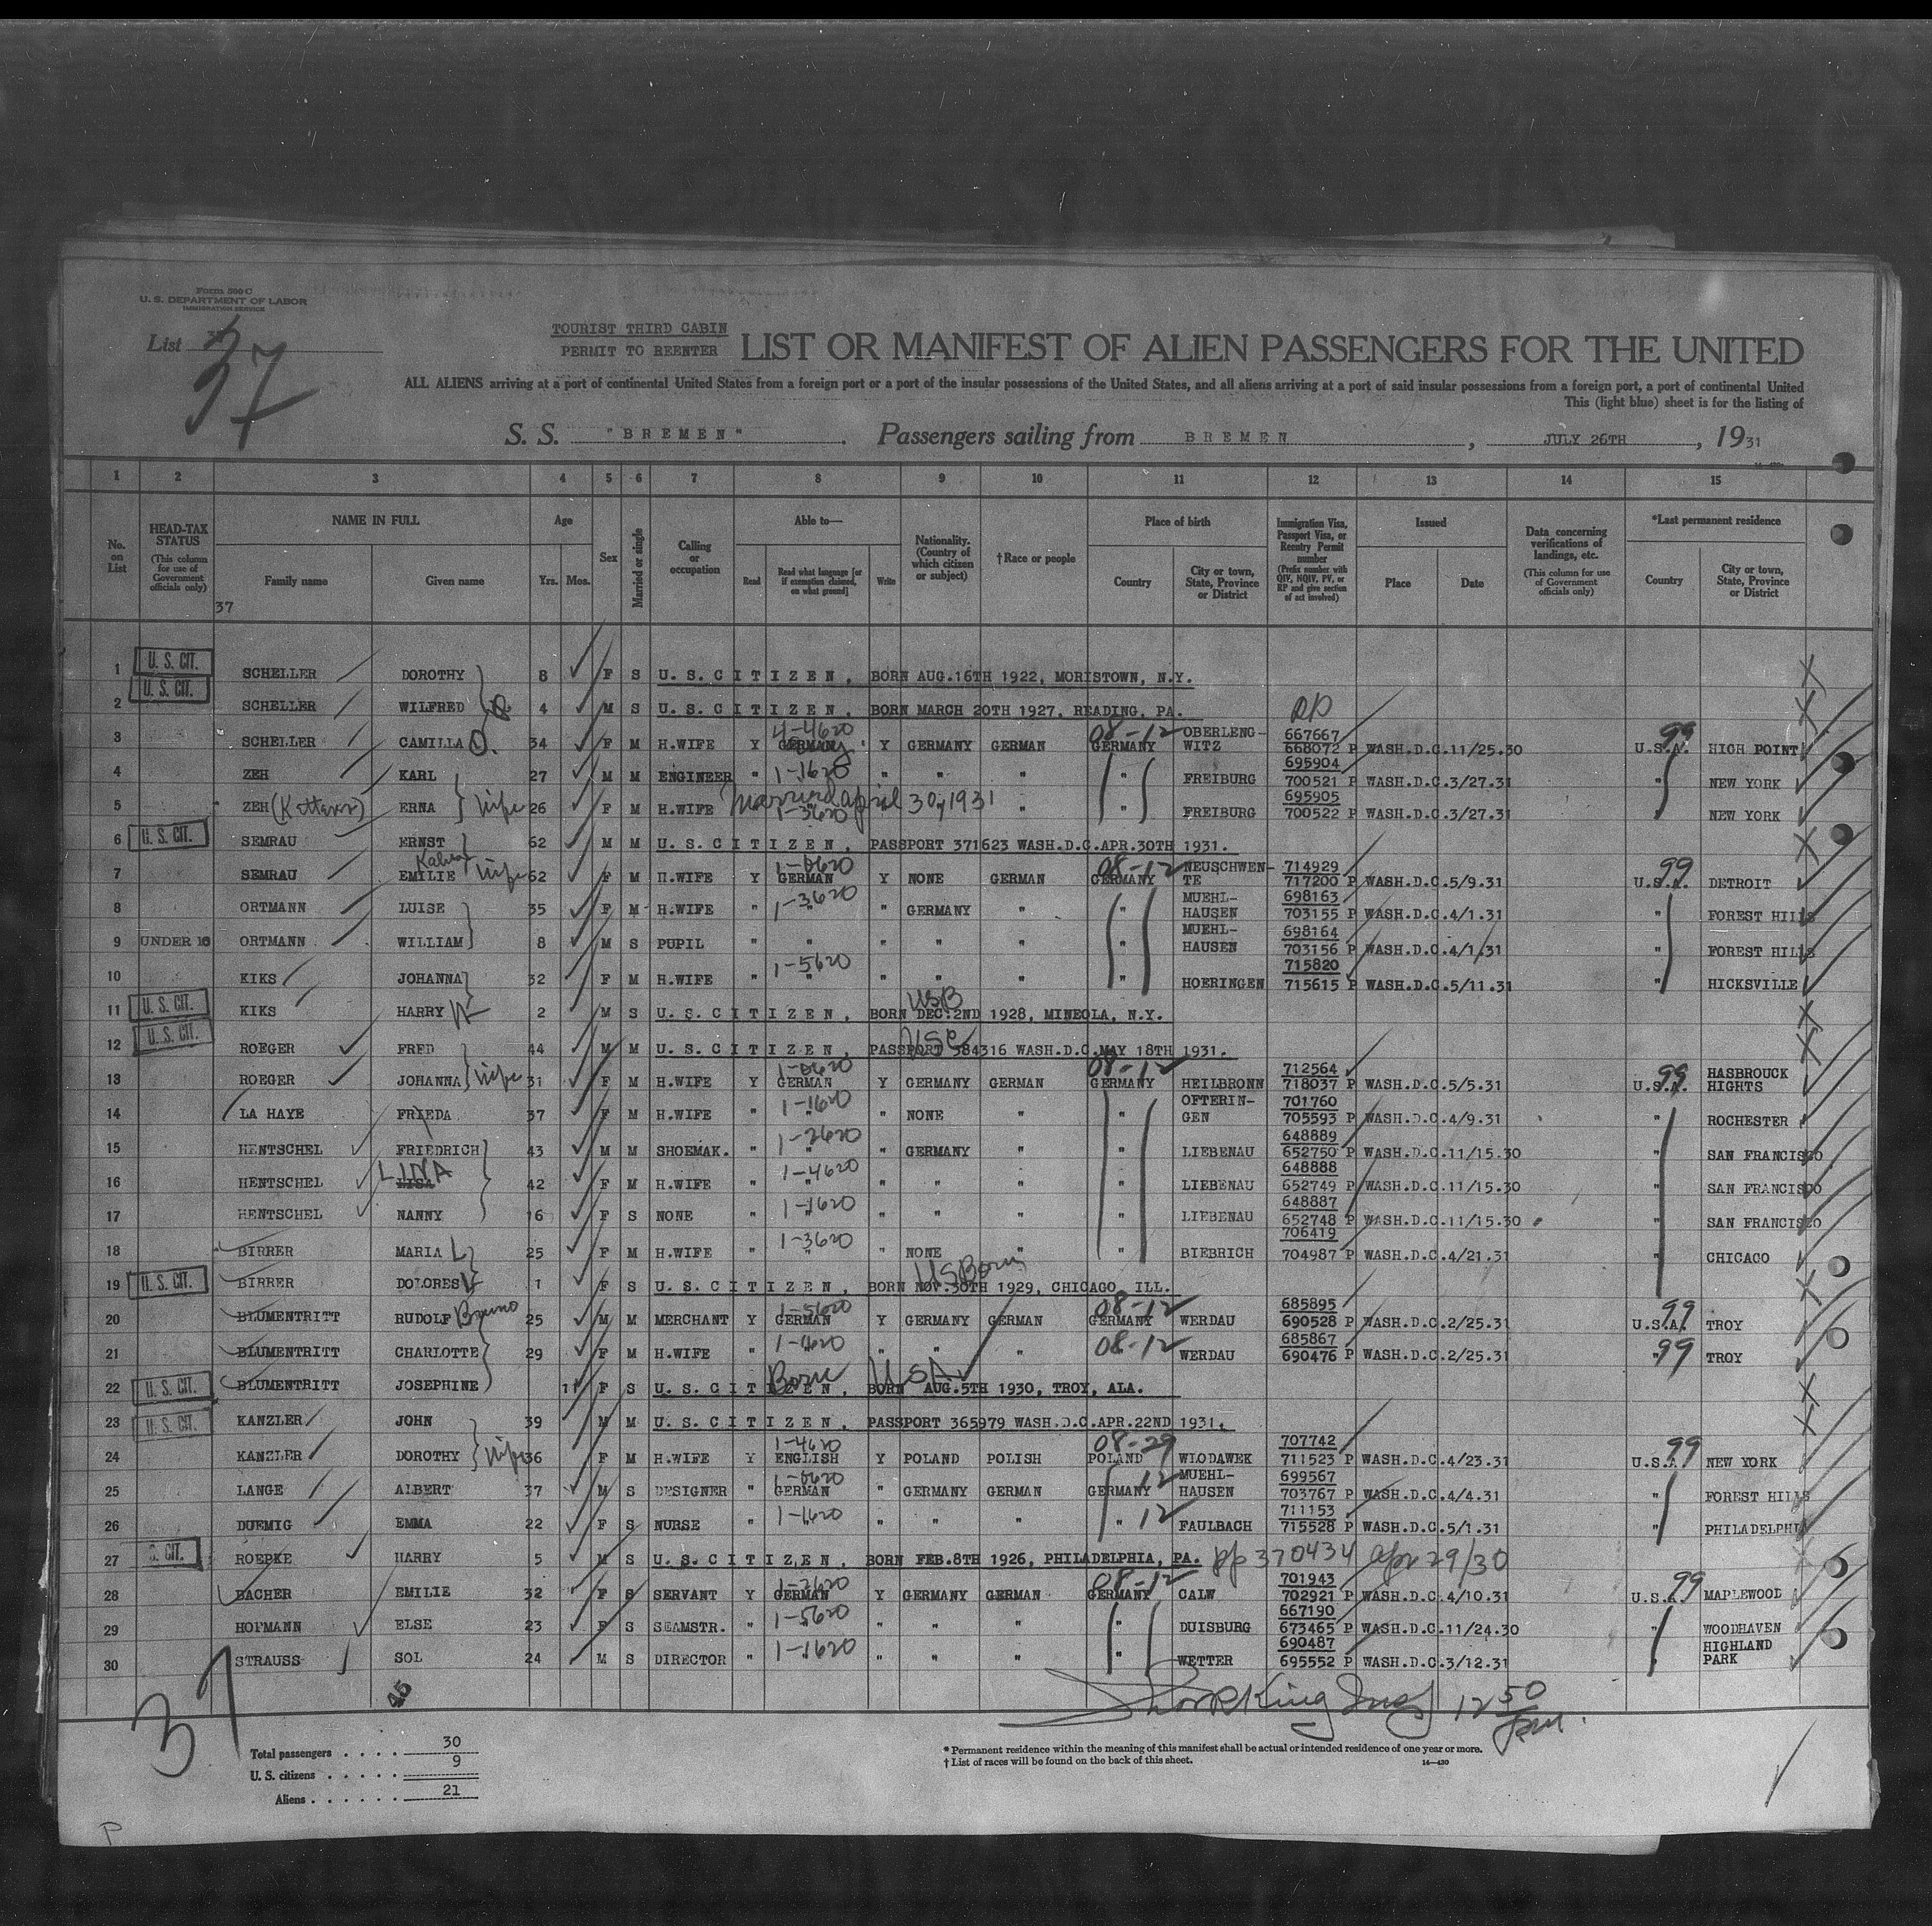 Form 500 C
U. S. DEPARTMENT OF LABOR
IMMIGRATION SERVICE
List 37
TOURIST THIRD CABIN
PERMIT TO REENTER
LIST OR MANIFEST OF ALIEN PASSENGERS FOR THE UNITED
ALL ALIENS arriving at a port of continental United States from a foreign port or a port of the insular possessions of the United States, and all aliens arriving at a port of said insular possessions from a foreign port, a port of continental United
This (light blue) sheet is for the listing of
S. S. "BREMEN" . Passengers sailing from BREMEN , JULY 26TH , 1931
1 2 3 4 5 6 7 8 9 10 11 12 13 14 15
No. on List
HEAD-TAX STATUS (This column for use of Government officials only)
NAME IN FULL
Family name Given name
Age Yrs. Mos.
Sex
Married or single
Calling or occupation
Able to—
Read Read what language [or if exemption claimed, on what ground] Write
Nationality. (Country of which citizen or subject)
†Race or people
Place of birth
Country City or town, State, Province or District
Immigration Visa, Passport Visa, or Reentry Permit number (Prefix number with QIV, NQIV, PV, or RP and give section of act involved)
Issued
Place Date
Data concerning verifications of landings, etc. (This column for use of Government officials only)
*Last permanent residence
Country City or town, State, Province or District
37
1 U. S. CIT. SCHELLER DOROTHY 8 F S U. S. CITIZEN, BORN AUG.16TH 1922, MORISTOWN, N.Y.
2 U. S. CIT. SCHELLER WILFRED 4 M S U. S. CITIZEN, BORN MARCH 20TH 1927, READING, PA.
RP
3 SCHELLER CAMILLA O. 34 F M H.WIFE Y 4-4620 GERMAN Y GERMANY GERMAN 08-12 GERMANY OBERLENG-WITZ 667667 668072 P WASH.D.C.11/25.30 U.S.A. 99 HIGH POINT
4 ZEH KARL 27 M M ENGINEER " 1-1620 " " " " FREIBURG 695904 700521 P WASH.D.C.3/27.31 " NEW YORK
5 ZEH ERNA wife 26 F M H.WIFE Married april 30, 1931 1-3620 " " FREIBURG 695905 700522 P WASH.D.C.3/27.31 " NEW YORK
6 U. S. CIT. SEMRAU ERNST 62 M M U. S. CITIZEN, PASSPORT 371623 WASH.D.C.APR.30TH 1931.
7 SEMRAU EMILIE wife 62 F M H.WIFE Y 1-0620 GERMAN Y NONE GERMAN 08-12 GERMANY NEUSCHWEN-TE 714929 717200 P WASH.D.C.5/9.31 U.S.A. 99 DETROIT
8 ORTMANN LUISE 35 F M H.WIFE " 1-3620 " " GERMANY " " MUEHL-HAUSEN 698163 703155 P WASH.D.C.4/1.31 " FOREST HILLS
9 UNDER 16 ORTMANN WILLIAM 8 M S PUPIL " " " " " " MUEHL-HAUSEN 698164 703156 P WASH.D.C.4/1.31 " FOREST HILLS
10 KIKS JOHANNA 32 F M H.WIFE " 1-5620 " " " " " HOERINGEN 715820 715615 P WASH.D.C.5/11.31 " HICKSVILLE
11 U. S. CIT. KIKS HARRY 2 M S U. S. CITIZEN, USB BORN DEC.2ND 1928, MINEOLA, N.Y.
12 U. S. CIT. ROEGER FRED 44 M M U. S. CITIZEN, USC PASSPORT 384316 WASH.D.C.MAY 18TH 1931.
13 ROEGER JOHANNA wife 31 F M H.WIFE Y 1-0620 GERMAN Y GERMANY GERMAN 08-12 GERMANY HEILBRONN 712564 718037 P WASH.D.C.5/5.31 U.S.A. 99 HASBROUCK HIGHTS
14 LA HAYE FRIEDA 37 F M H.WIFE " 1-1620 " " NONE " " OFTERIN-GEN 701760 705593 P WASH.D.C.4/9.31 " ROCHESTER
15 HENTSCHEL FRIEDRICH 43 M M SHOEMAK. " 1-2620 " " GERMANY " " LIEBENAU 648889 652750 P WASH.D.C.11/15.30 " SAN FRANCISCO
16 HENTSCHEL LINA LISA 42 F M H.WIFE " 1-4620 " " " " " LIEBENAU 648888 652749 P WASH.D.C.11/15.30 " SAN FRANCISCO
17 HENTSCHEL NANNY 16 F S NONE " 1-1620 " " " " " LIEBENAU 648887 652748 P WASH.D.C.11/15.30 " SAN FRANCISCO
18 BIRRER MARIA L 25 F M H.WIFE " 1-3620 " NONE " " BIEBRICH 706419 704987 P WASH.D.C.4/21.31 " CHICAGO
19 U. S. CIT. BIRRER DOLORES 1 F S U. S. CITIZEN, US Born BORN NOV.30TH 1929, CHICAGO, ILL.
20 BLUMENTRITT RUDOLF Bruno 25 M M MERCHANT Y 1-5620 GERMAN Y GERMANY GERMAN 08-12 GERMANY WERDAU 685895 690528 P WASH.D.C.2/25.31 U.S.A. 99 TROY
21 BLUMENTRITT CHARLOTTE 29 F M H.WIFE " 1-1620 " " " " 08-12 WERDAU 685867 690476 P WASH.D.C.2/25.31 " 99 TROY
22 U. S. CIT. BLUMENTRITT JOSEPHINE 11 F S U. S. CITIZEN, Born USA BORN AUG.5TH 1930, TROY, ALA.
23 U. S. CIT. KANZLER JOHN 39 M M U. S. CITIZEN, PASSPORT 365979 WASH.D.C.APR.22ND 1931.
24 KANZLER DOROTHY wife 36 F M H.WIFE Y 1-4620 ENGLISH Y POLAND POLISH 08-29 POLAND WLODAWEK 707742 711523 P WASH.D.C.4/23.31 U.S.A. 99 NEW YORK
25 LANGE ALBERT 37 M S DESIGNER " 1-0620 GERMAN " GERMANY GERMAN 12 GERMANY MUEHL-HAUSEN 699567 703767 P WASH.D.C.4/4.31 " FOREST HILLS
26 DUEMIG EMMA 22 F S NURSE " 1-1620 " " " " " 12 FAULBACH 711153 715528 P WASH.D.C.5/1.31 " PHILADELPHIA
27 S. CIT. ROEPKE HARRY 5 M S U. S. CITIZEN, BORN FEB.8TH 1926, PHILADELPHIA, PA. pp 370434 apr 29/30
28 BACHER EMILIE 32 F S SERVANT Y 1-2620 GERMAN Y GERMANY GERMAN 08-12 GERMANY CALW 701943 702921 P WASH.D.C.4/10.31 U.S.A. 99 MAPLEWOOD
29 HOFMANN ELSE 23 F S SEAMSTR. " 1-5620 " " " " " DUISBURG 667190 673465 P WASH.D.C.11/24.30 " WOODHAVEN
30 STRAUSS SOL 24 M S DIRECTOR " 1-1620 " " " " WETTER 690487 695552 P WASH.D.C.3/12.31 " HIGHLAND PARK
37
45
12 50
Total passengers . . . . 30
U. S. citizens . . . . . 9
Aliens . . . . . . 21
* Permanent residence within the meaning of this manifest shall be actual or intended residence of one year or more.
† List of races will be found on the back of this sheet.
14—430
P